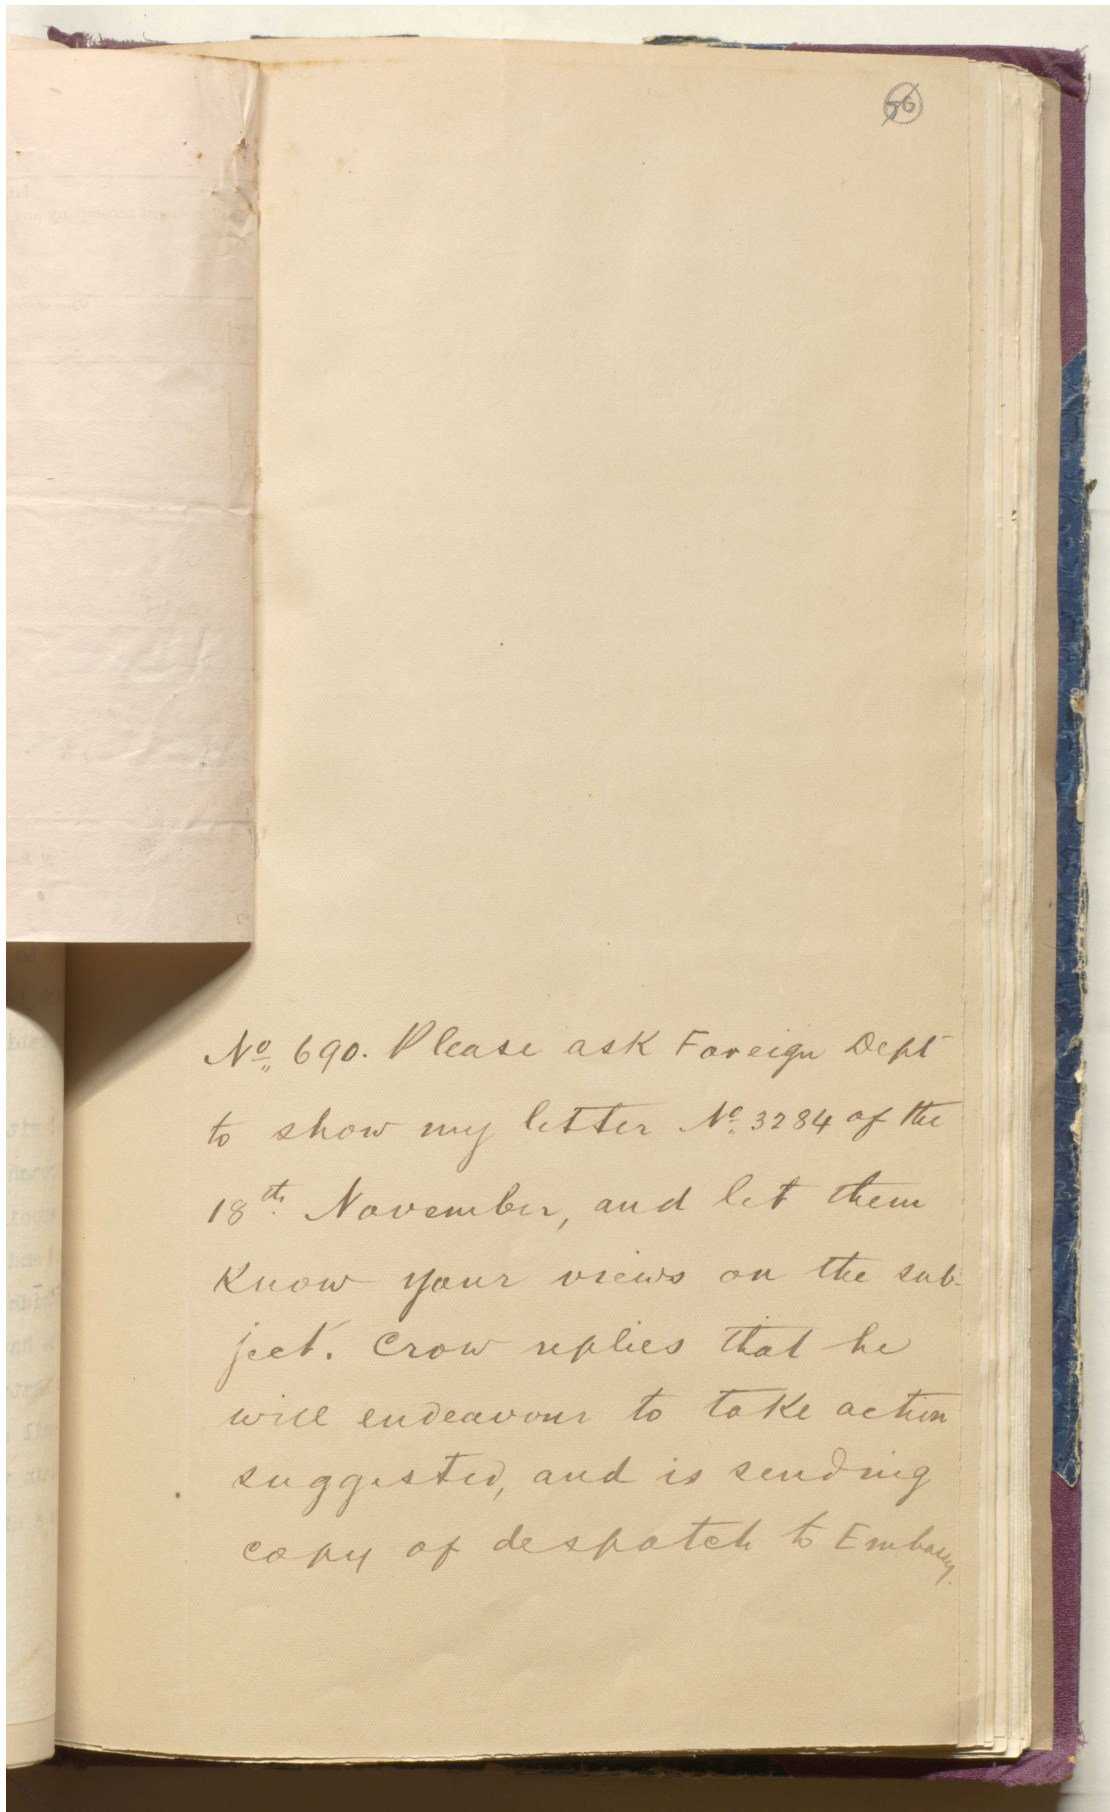 56
No. 690. Please ask Foreign Dept
to show my letter No. 3284 of the
18th. November, and let them
know your views on the sub-
ject. Crow replies that he
will endeavour to take action
suggested, and is sending
copy of despatch to Embassy.